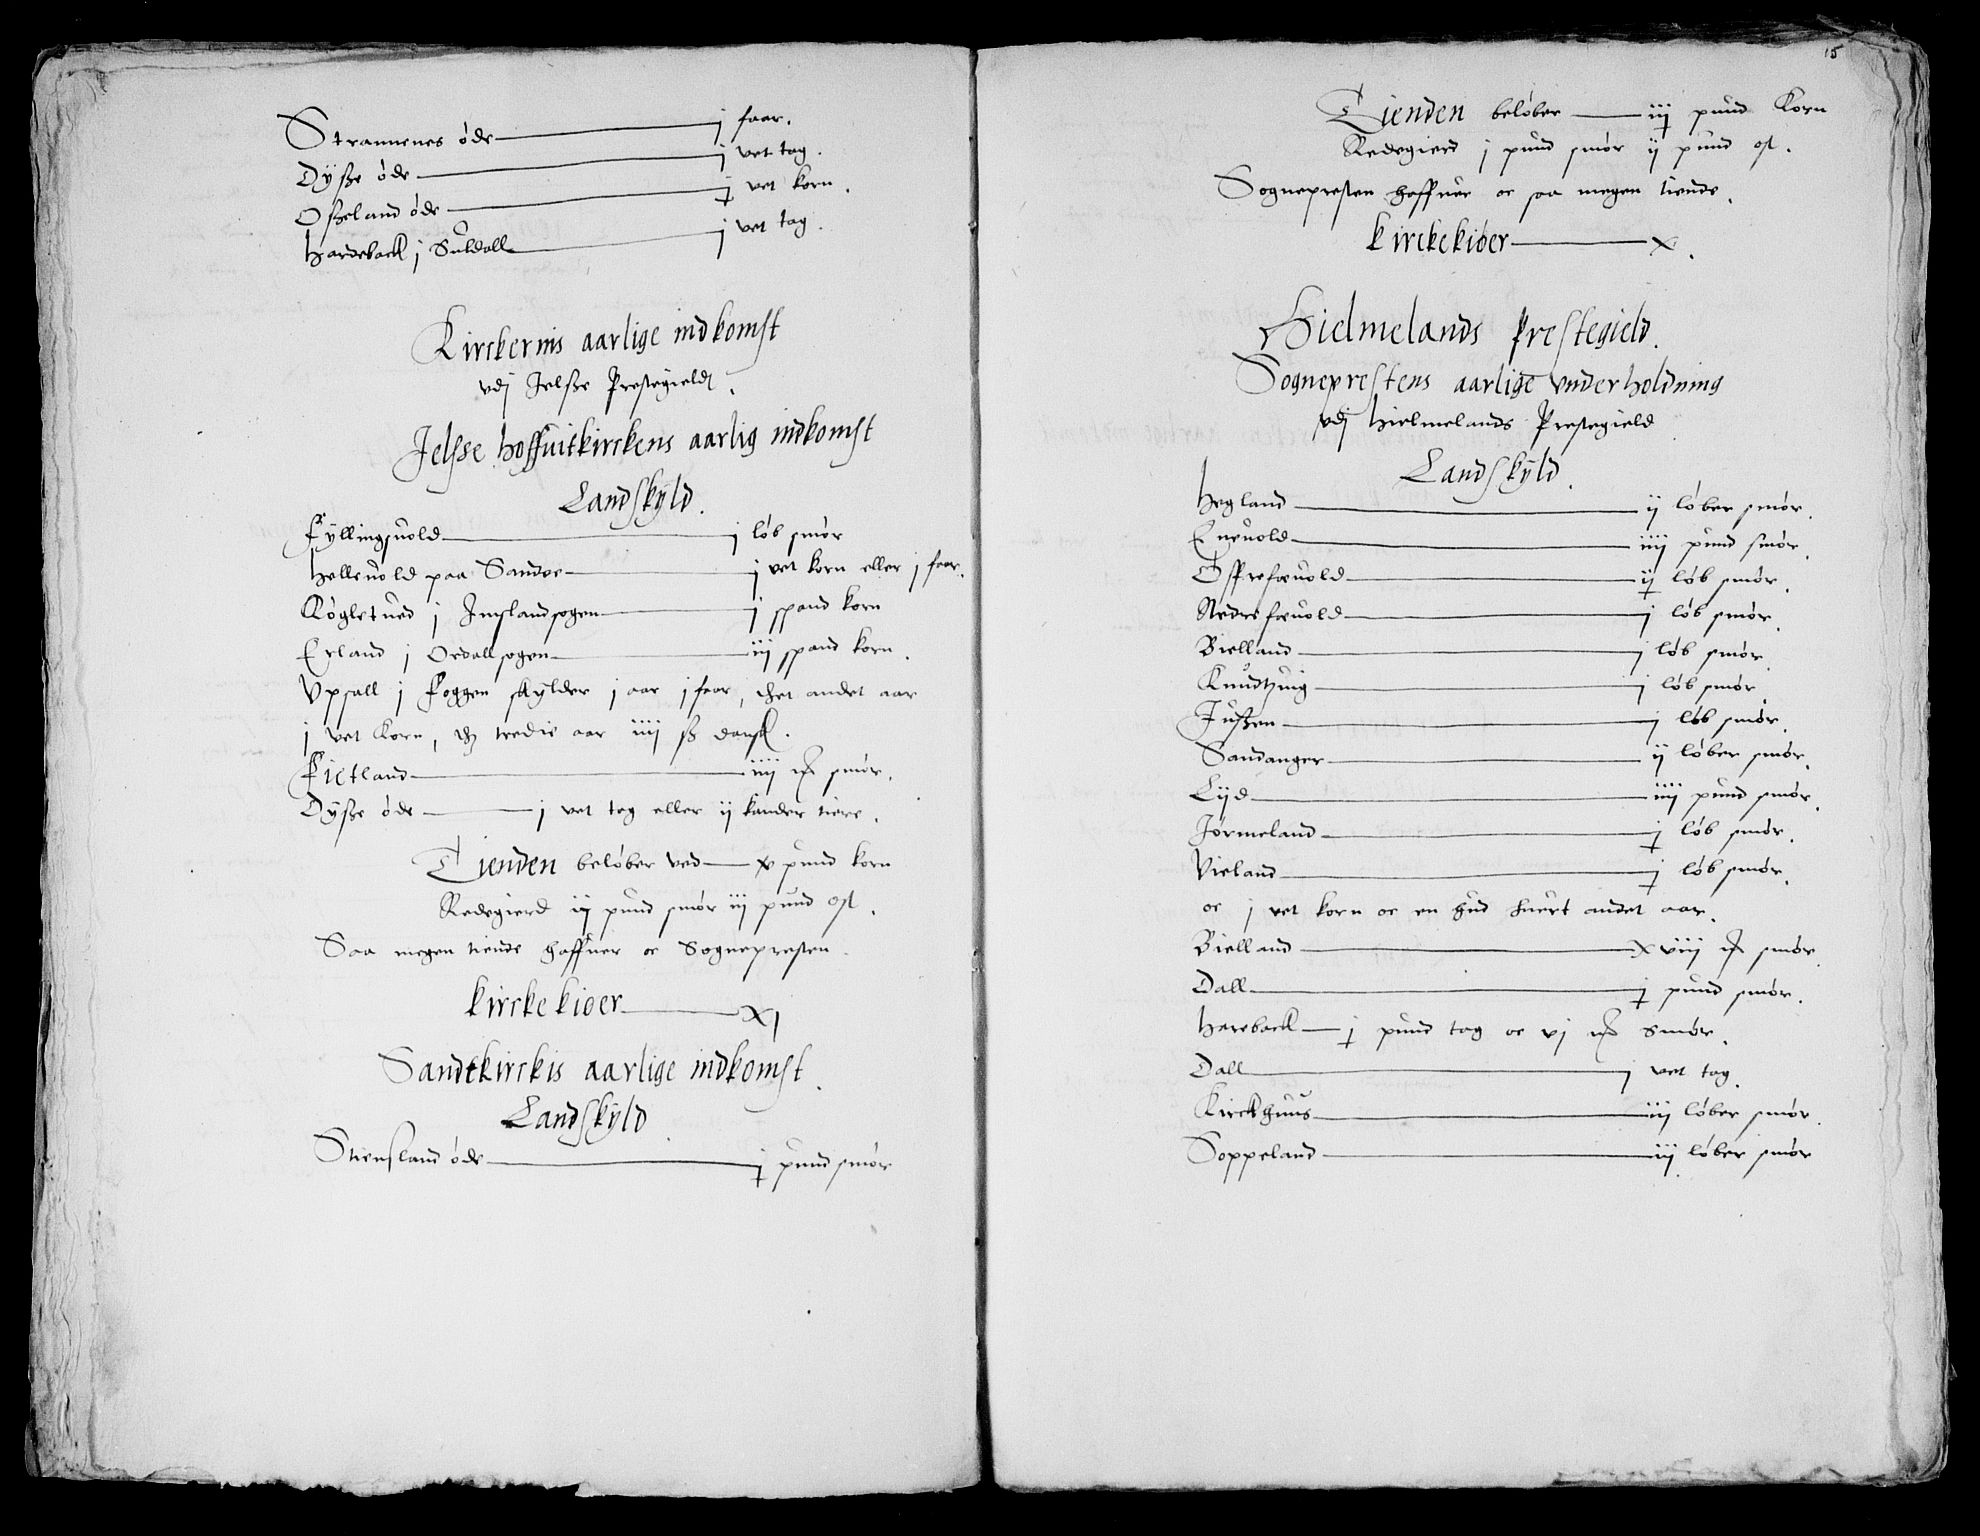 Strannenes øde — j faar.
Dysße øde — j vet tag.
Osßeland øde — j vet korn.
Hardeback j Suldall — j vet tag.
Kirckernis aarlige indkomst
vdj Jelsße Prestegield.
Jelsße hoffuitkirckens aarlig indkomst
Landskyld.
Fyllingsuold — j løb smør
Helleuold paa Sandøe — j vet korn eller j faar.
Røgletued j Imslandsogen — j spand korn
Erland j Ordallsogen — iij spand korn.
Vpsall j Foggen skylder j aar j faar, thet andet aar
j vet Korn, th tredie aar iiij sß dansk.
Fietland — iiij mk smør.
Dysße øde — j vet tag eller ij kander tiere.
Tienden beløber ved — x pund korn
Redegierd ij pund smør iij pund ost.
Saa megen tiende haffuer oc Sognepresten.
Kircke kiøer — xj
Sandtkirckis aarlige indkomst.
Landskyld
Stiensland øde — j pund smør
15
Tienden beløber — iij pund Korn
Redegierd j pund smør ij pund ost.
Sognepresten haffuer oc saa megen tiende.
Kirckekiøer — x.
Hielmelands Prestegield.
Sogneprestens aarlige vnderholdning
vdj Hielmelands Prestegield
Landskyld.
Hegland — ij løber smør.
Eneuold — iiij pund smør.
Øffrefæuold — ij løb smør.
Nedrefæuold — j løb smør.
Bielland — j løb smør.
Knudtzuig — j løb smør.
Jusßen — j løb smør.
Sandanger — ij løber smør.
Lijd — iiij pund smør.
Jørmeland — j løb smør.
Vieland — j løb smør.
oc j vet korn oc en hud huert andet aar.
Bielland — xviij mk smør.
Dall — j pund smør.
Hareback — j pund tag oc vj mk smør.
Dall — j vet tag.
Kirckhuus — iij løber smør.
Soppeland — iij løber smør